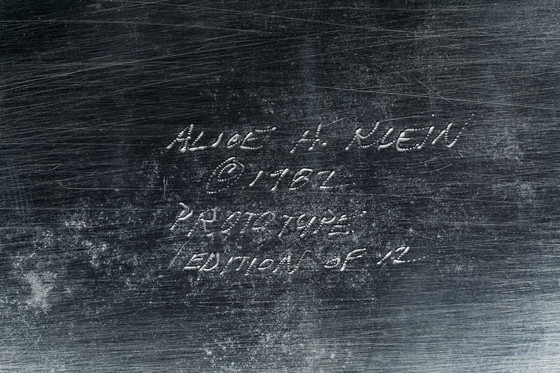 ALICE A. KLEIN
© 1982
PROTOTYPE
EDITION OF 12